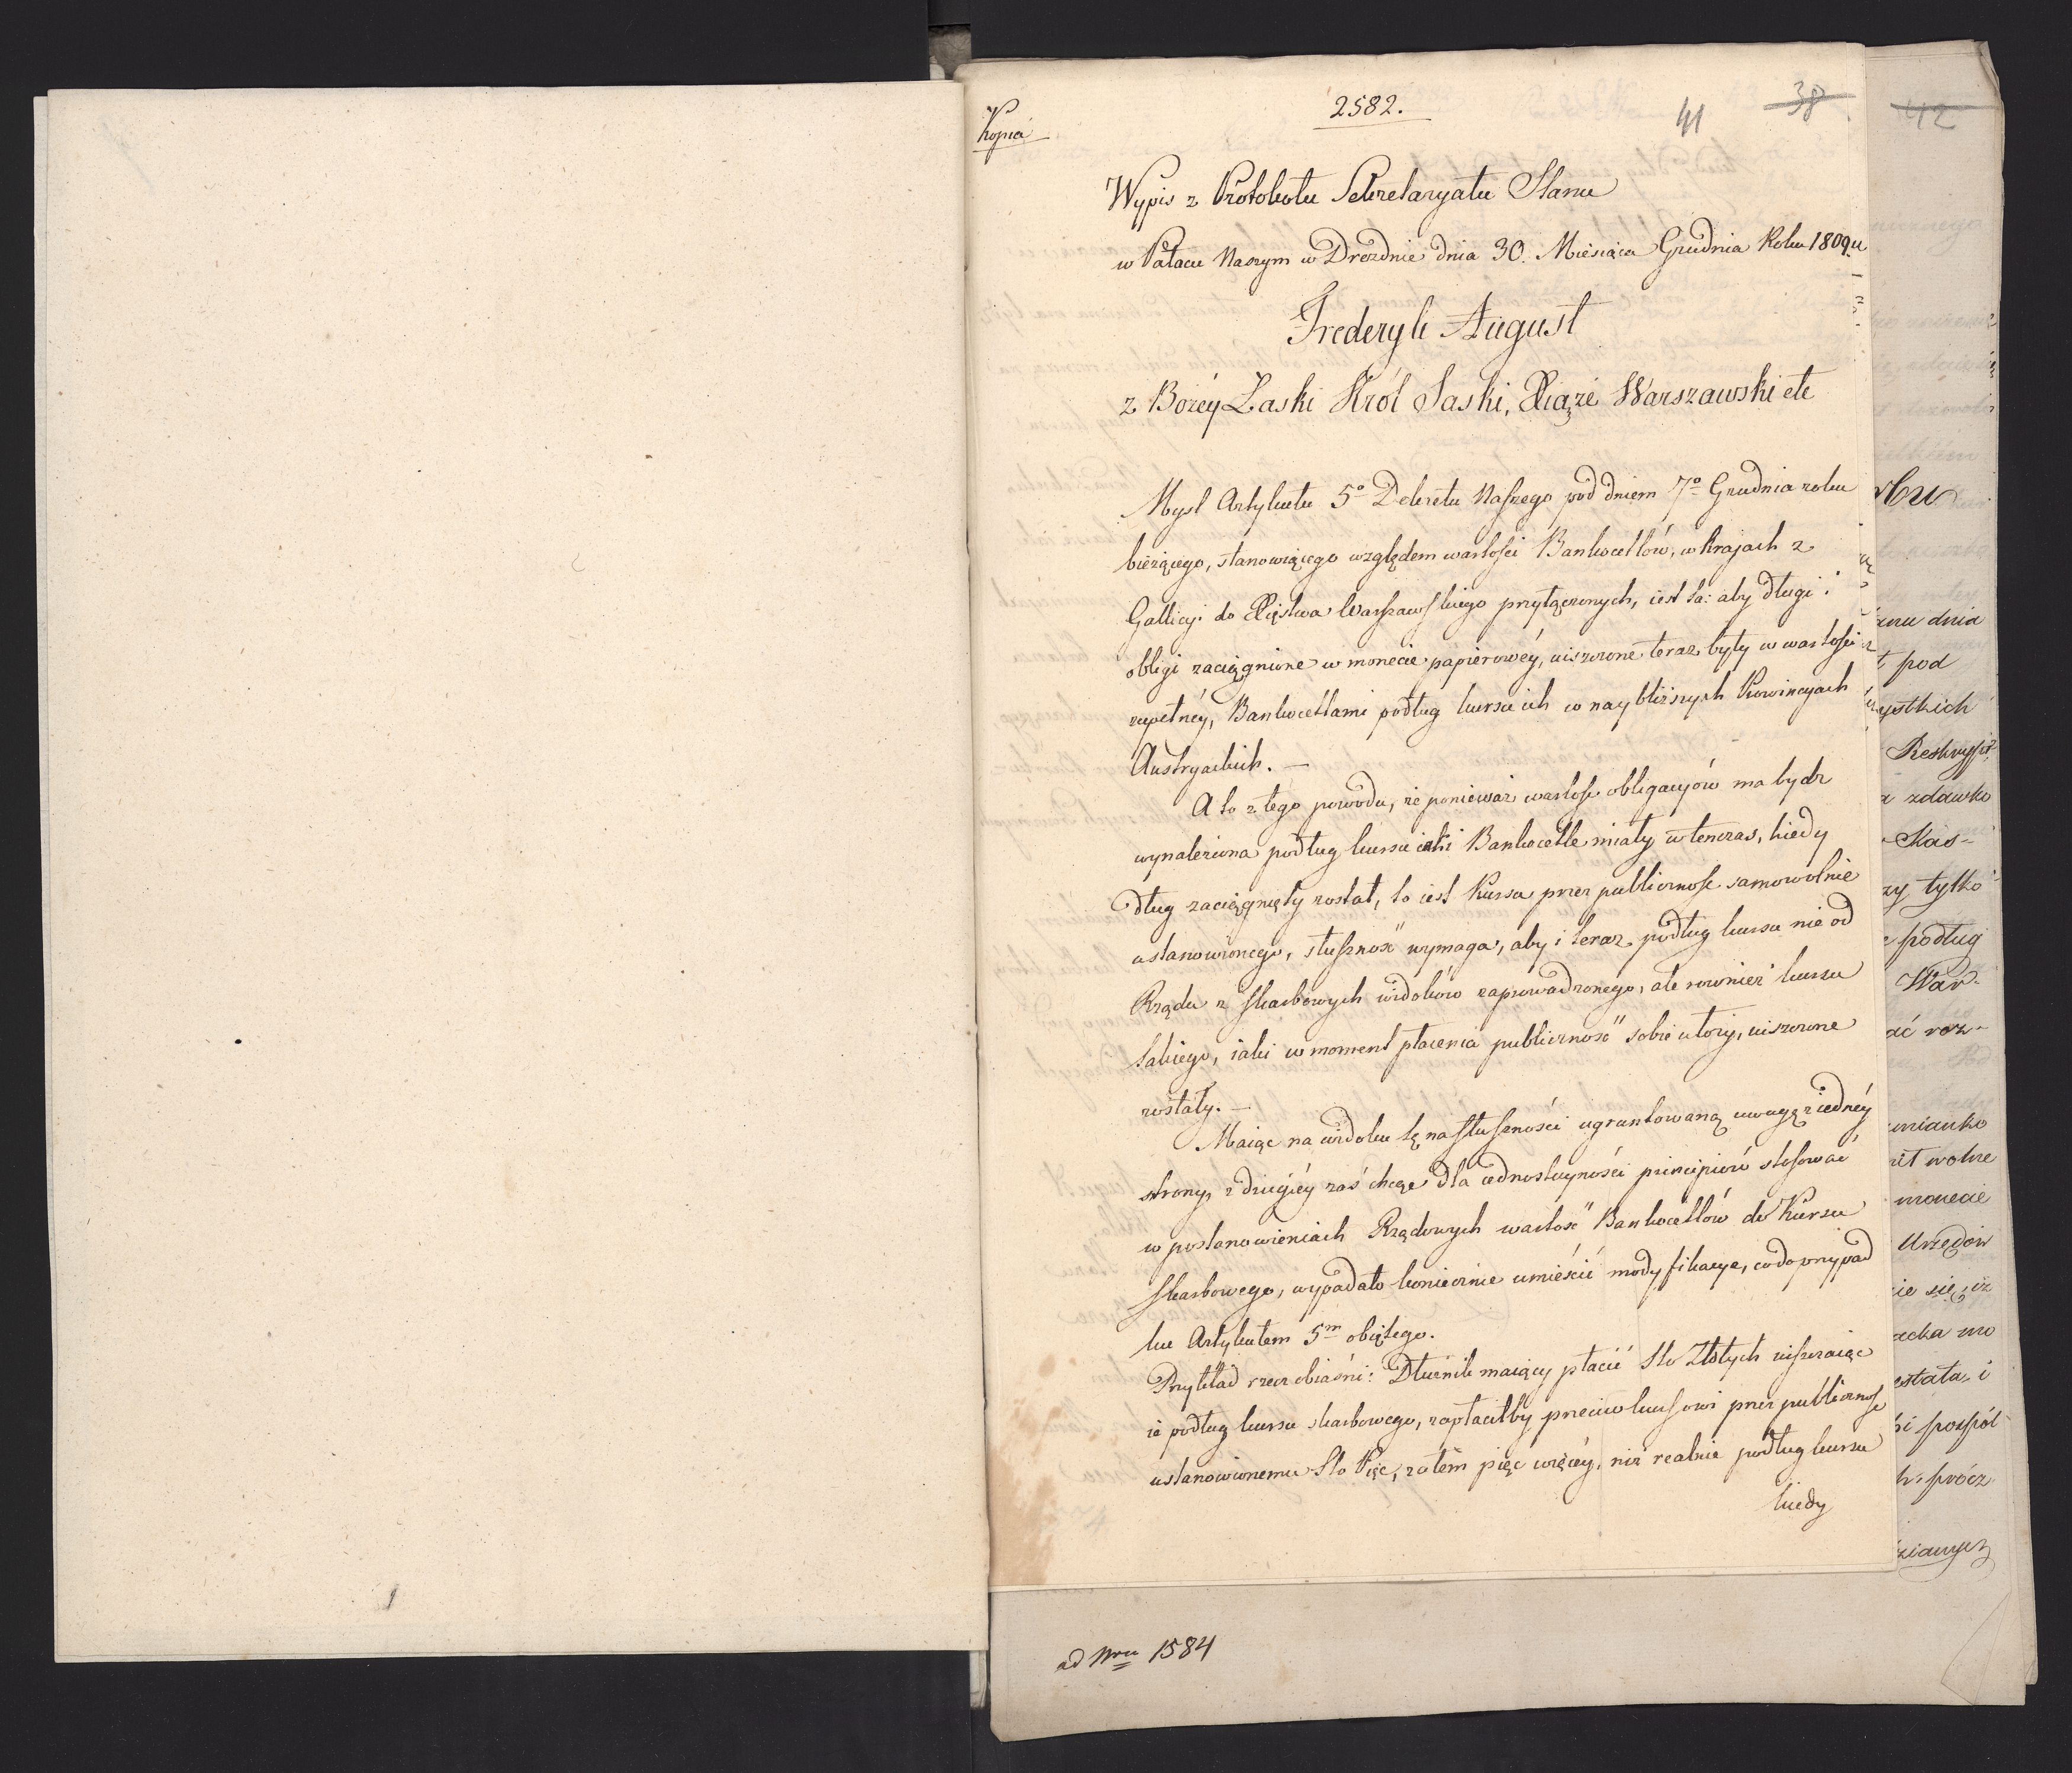 Kopia
2582.
41
38
42
Wypis z Protokołu Sekretaryatu Stanu
w Pałacu Naszym w Dreźdnie dnia 30. Miesiąca Grudnia Roku 1809.
Frederyk August
z Bożéy Łaski Król Saski, Xiąże Warszawski etc
Mysl Artykułu 5º Dekretu Naszego pod dniem 7º Grudnia roku
bieżącego, stanowiącego względem wartości Bankocetlów, w krajach z
Gallicyi do Xięstwa Warszawskiego przyłączonych, iest ta: aby długi i
obligi zaciągnione w monecie papierowéy, uiszczone teraz były w wartości
zupełnéy, Bankocetlami podług kursu ich w naybliższych Prowincyach
Austryackich. —
A to z tego powodu, że ponieważ wartość obligacyów ma bydz
wynaleziona podług kursu iaki Bankocetle miały w tenczas, kiedy
dług zaciągnięty został, to iest Kursu przez publiczność samowolnie
ustanowionego, słuszność wymaga, aby i teraz podług kursu nie od
Rządu z skarbowych widoków zaprowadzonego, ale rownież kursu
takiego, iaki w moment płacenia publiczność sobie utoży, uiszczone
zostały. —
Maiąc na widoku tę na słuszności ugruntowaną uwagę z iednéy
strony, z drugiéy zaś chcąc dla iednostayności principiów stosować
w postanowieniach Rządowych wartość Bankocetlów do Kursu
skarbowego, wypadało koniecznie umieścić modyfikacye, co do przypad
ku Artykułem 5m obiętego.
Przykład rzecz obiaśni: Dłużnik maiący płacić Sto Złotych uiszczaiąc
ie podług kursu skarbowego, zapłaciłby przeciw kursowi przez publiczność
ustanowionemu Sto Pięć, zatém pięć więcéy, niż realnie podług kursu
kiedy
ad Nru 1584
rbu
anu dnia
t pod
zystkich
a zdawko
Kas-
zy tylko
podług
War-
ać roz-
mianko
rit wolne
monecie
Urzędów
ie się, iż
acka mo
estata i
i pospól
h. prócz